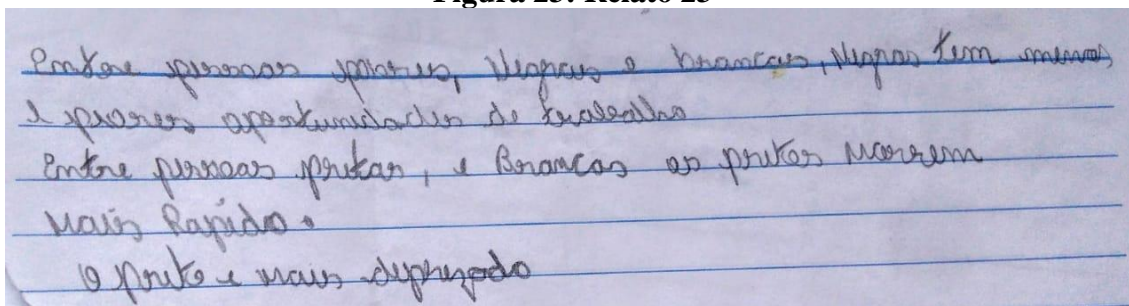 Figura 25: Relato 25
Entre pessoas pobres, Negras e brancas, Negras tem menos
e piores oportunidades de trabalho
Entre pessoas pretas, e Brancas os pretos Morrem
Mais Rapido.
O preto e mais desprezado